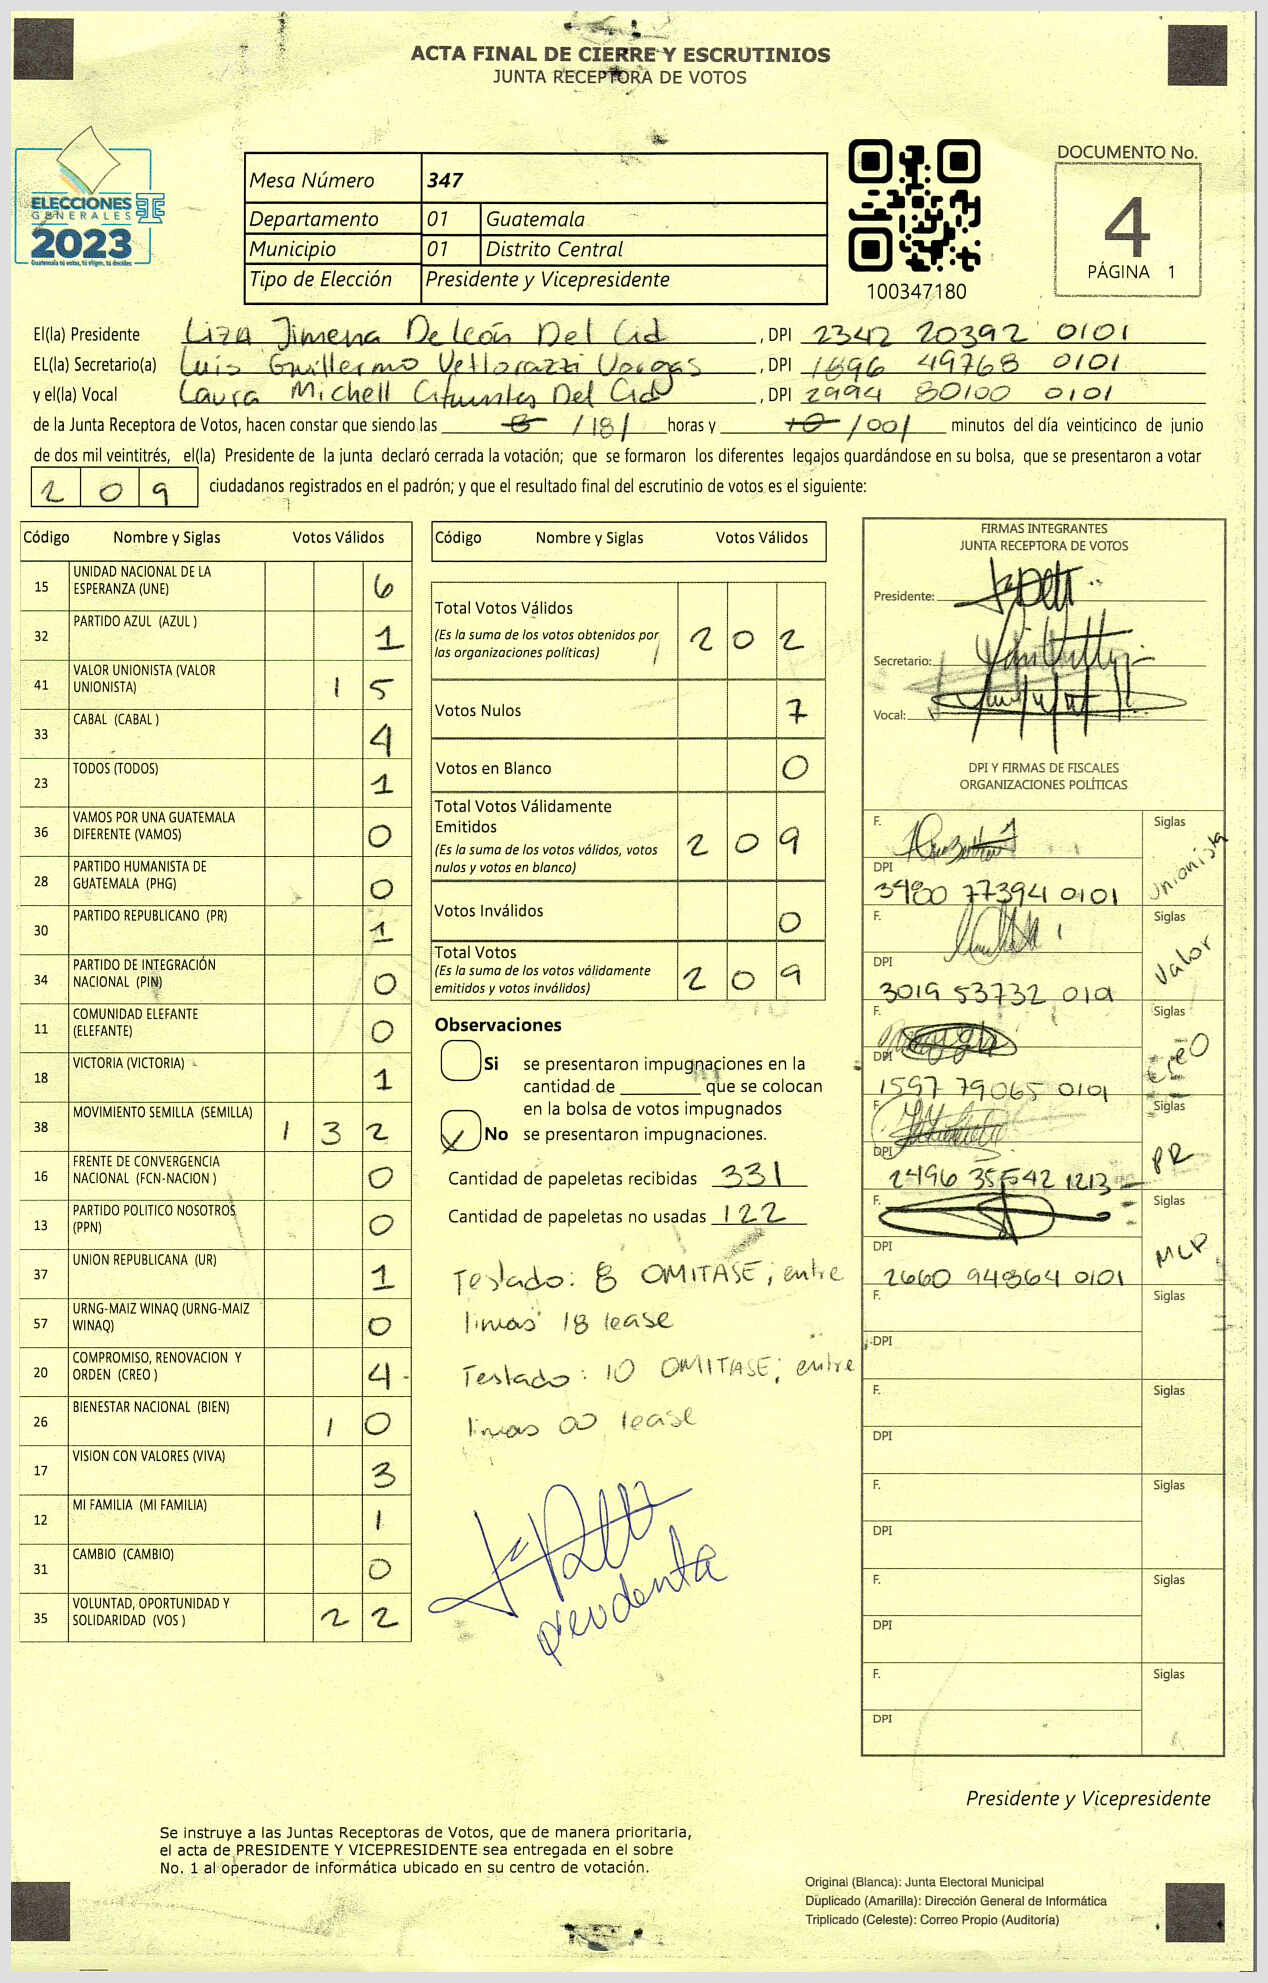 ACTA FINAL DE CIERRE Y ESCRUTINIOS
JUNTA RECEPTORA DE VOTOS
ELECCIONES
GENERALES
2023
Guatemala tú votas, tú eliges, tú decides
Mesa Número 347
Departamento 01 Guatemala
Municipio 01 Distrito Central
Tipo de Elección Presidente y Vicepresidente
100347180
DOCUMENTO No.
4
PÁGINA 1
El(la) Presidente Liza Jimena De León Del Cid, DPI 2342 20392 0101
EL(la) Secretario(a) Luis Guillermo Vettorazzi Vargas, DPI 1896 49768 0101
y el(la) Vocal Laura Michell Cifuentes Del Cid, DPI 2994 80100 0101
de la Junta Receptora de Votos, hacen constar que siendo las 8 /18/ horas y 10 /00/ minutos del día veinticinco de junio
de dos mil veintitrés, el(la) Presidente de la junta declaró cerrada la votación; que se formaron los diferentes legajos guardándose en su bolsa, que se presentaron a votar
209 ciudadanos registrados en el padrón; y que el resultado final del escrutinio de votos es el siguiente:
Código Nombre y Siglas Votos Válidos
15 UNIDAD NACIONAL DE LA ESPERANZA (UNE) 6
32 PARTIDO AZUL (AZUL ) 1
41 VALOR UNIONISTA (VALOR UNIONISTA) 15
33 CABAL (CABAL ) 4
23 TODOS (TODOS) 1
36 VAMOS POR UNA GUATEMALA DIFERENTE (VAMOS) 0
28 PARTIDO HUMANISTA DE GUATEMALA (PHG) 0
30 PARTIDO REPUBLICANO (PR) 1
34 PARTIDO DE INTEGRACIÓN NACIONAL (PIN) 0
11 COMUNIDAD ELEFANTE (ELEFANTE) 0
18 VICTORIA (VICTORIA) 1
38 MOVIMIENTO SEMILLA (SEMILLA) 132
16 FRENTE DE CONVERGENCIA NACIONAL (FCN-NACION ) 0
13 PARTIDO POLITICO NOSOTROS (PPN) 0
37 UNION REPUBLICANA (UR) 1
57 URNG-MAIZ WINAQ (URNG-MAIZ WINAQ) 0
20 COMPROMISO, RENOVACION Y ORDEN (CREO ) 4
26 BIENESTAR NACIONAL (BIEN) 10
17 VISION CON VALORES (VIVA) 3
12 MI FAMILIA (MI FAMILIA) 1
31 CAMBIO (CAMBIO) 0
35 VOLUNTAD, OPORTUNIDAD Y SOLIDARIDAD (VOS ) 22
Código Nombre y Siglas Votos Válidos
Total Votos Válidos
(Es la suma de los votos obtenidos por
las organizaciones políticas) 202
Votos Nulos 7
Votos en Blanco 0
Total Votos Válidamente
Emitidos
(Es la suma de los votos válidos, votos
nulos y votos en blanco) 209
Votos Inválidos 0
Total Votos
(Es la suma de los votos válidamente
emitidos y votos inválidos) 209
Observaciones
Si se presentaron impugnaciones en la
cantidad de ________ que se colocan
en la bolsa de votos impugnados
No se presentaron impugnaciones.
Cantidad de papeletas recibidas 331
Cantidad de papeletas no usadas 122
Testado: 8 OMITASE; entre
lineas 18 lease
Testado: 10 OMITASE; entre
lineas 00 lease
FIRMAS INTEGRANTES
JUNTA RECEPTORA DE VOTOS
Presidente:
Secretario:
Vocal:
DPI Y FIRMAS DE FISCALES
ORGANIZACIONES POLÍTICAS
F. Siglas Unionista
DPI 3480 77394 0101
F. Siglas Valor
DPI 3019 53732 0101
F. Siglas CREO
DPI 1597 79065 0101
F. Siglas PR
DPI 2496 35542 1213
F. Siglas MLP
DPI 2660 94864 0101
F. Siglas
DPI
F. Siglas
DPI
F. Siglas
DPI
F. Siglas
DPI
F. Siglas
DPI
Presidente y Vicepresidente
Se instruye a las Juntas Receptoras de Votos, que de manera prioritaria,
el acta de PRESIDENTE Y VICEPRESIDENTE sea entregada en el sobre
No. 1 al operador de informática ubicado en su centro de votación.
Original (Blanca): Junta Electoral Municipal
Duplicado (Amarilla): Dirección General de Informática
Triplicado (Celeste): Correo Propio (Auditoría)